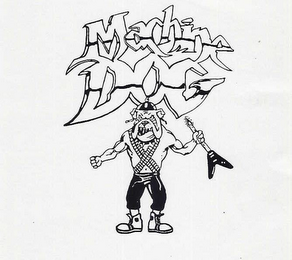 Machine
Dog